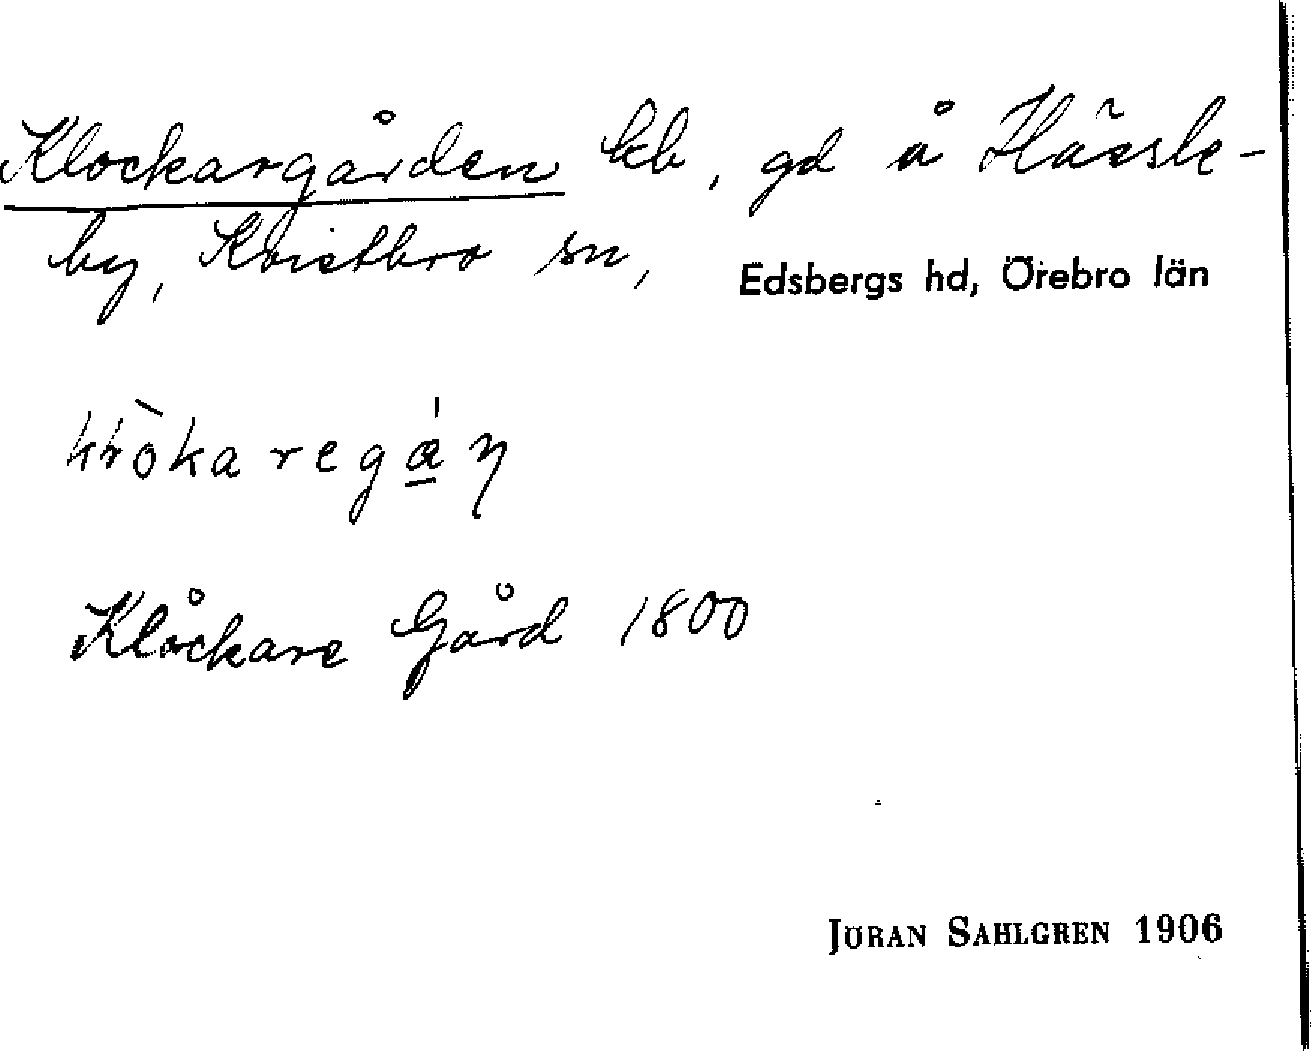 Klockargården kb, gd å Hässle-
by, Kvistbro sn, Edsbergs hd, Örebro län
Klåckare Gård 1800
JÖRAN SAHLGREN 1906